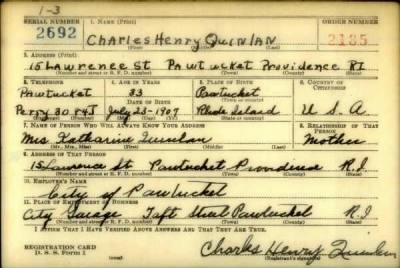 1-3
SERIAL NUMBER 1. NAME (Print) ORDER NUMBER
2692 Charles Henry Quinlan 2185
(First) (Middle) (Last)
3. ADDRESS (Print)
15 Lawrence St Pawtucket Providence RI
(Number and street or R. F. D. number) (Town) (County) (State)
4. TELEPHONE 5. AGE IN YEARS 6. PLACE OF BIRTH 8. COUNTRY OF CITIZENSHIP
Pawtucket 33 Pawtucket
DATE OF BIRTH (Town or county)
Perry 3084J July 23-1907 Rhode Island U S A
7. NAME OF PERSON WHO WILL ALWAYS KNOW YOUR ADDRESS 8. RELATIONSHIP OF THAT PERSON
Mrs Katharine Quinlan Mother
(Mr., Mrs., Miss) (First) (Middle) (Last)
9. ADDRESS OF THAT PERSON
15 Lawrence St Pawtucket Providence R.I
(Number and street or R. F. D. number) (Town) (County) (State)
10. EMPLOYER'S NAME
City of Pawtucket
11. PLACE OF EMPLOYMENT OR BUSINESS
City Garage Taft Street Pawtucket R.I
(Number and street or R. F. D. number) (Town) (County) (State)
I AFFIRM THAT I HAVE VERIFIED ABOVE ANSWERS AND THAT THEY ARE TRUE.
REGISTRATION CARD
D. S. S. Form 1
Charles Henry Quinlan
(Registrant's signature)